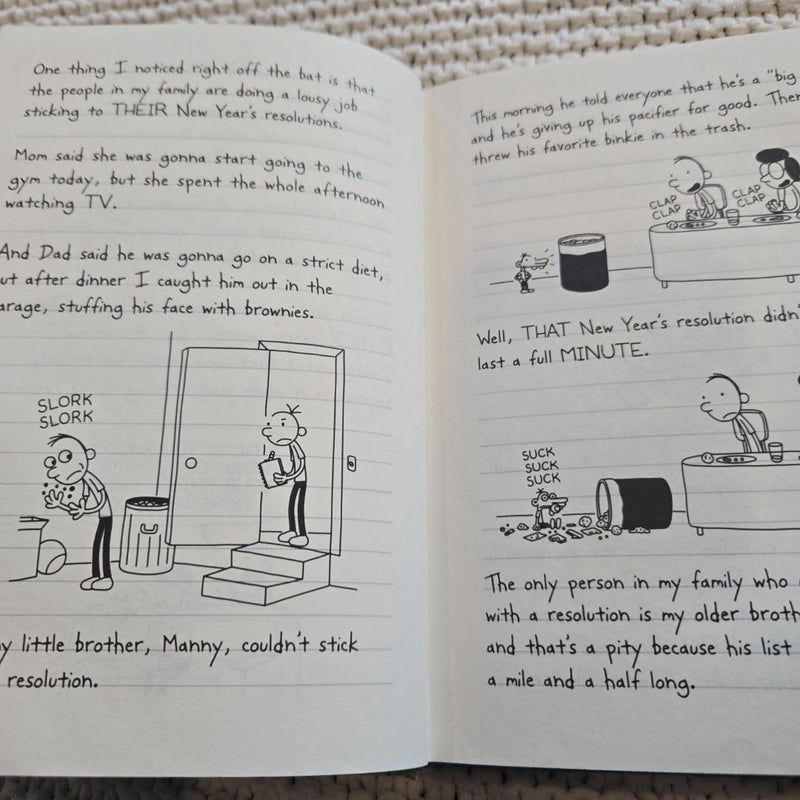 One thing I noticed right off the bat is that
the people in my family are doing a lousy job
sticking to THEIR New Year's resolutions.
Mom said she was gonna start going to the
gym today, but she spent the whole afternoon
watching TV.
And Dad said he was gonna go on a strict diet,
ut after dinner I caught him out in the
arage, stuffing his face with brownies.
SLORK
SLORK
y little brother, Manny, couldn't stick
resolution.
This morning he told everyone that he's a "big
and he's giving up his pacifier for good. Then
threw his favorite binkie in the trash.
CLAP
CLAP
CLAP
CLAP
Well, THAT New Year's resolution didn'
last a full MINUTE.
SUCK
SUCK
SUCK
The only person in my family who
with a resolution is my older broth
and that's a pity because his list
a mile and a half long.